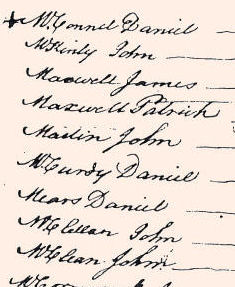 + McConnel Daniel
McKinly John
Maxwell James
Maxwell Patrick
Martin John
McCurdy Daniel
Mears Daniel
McClellan John
McClean John